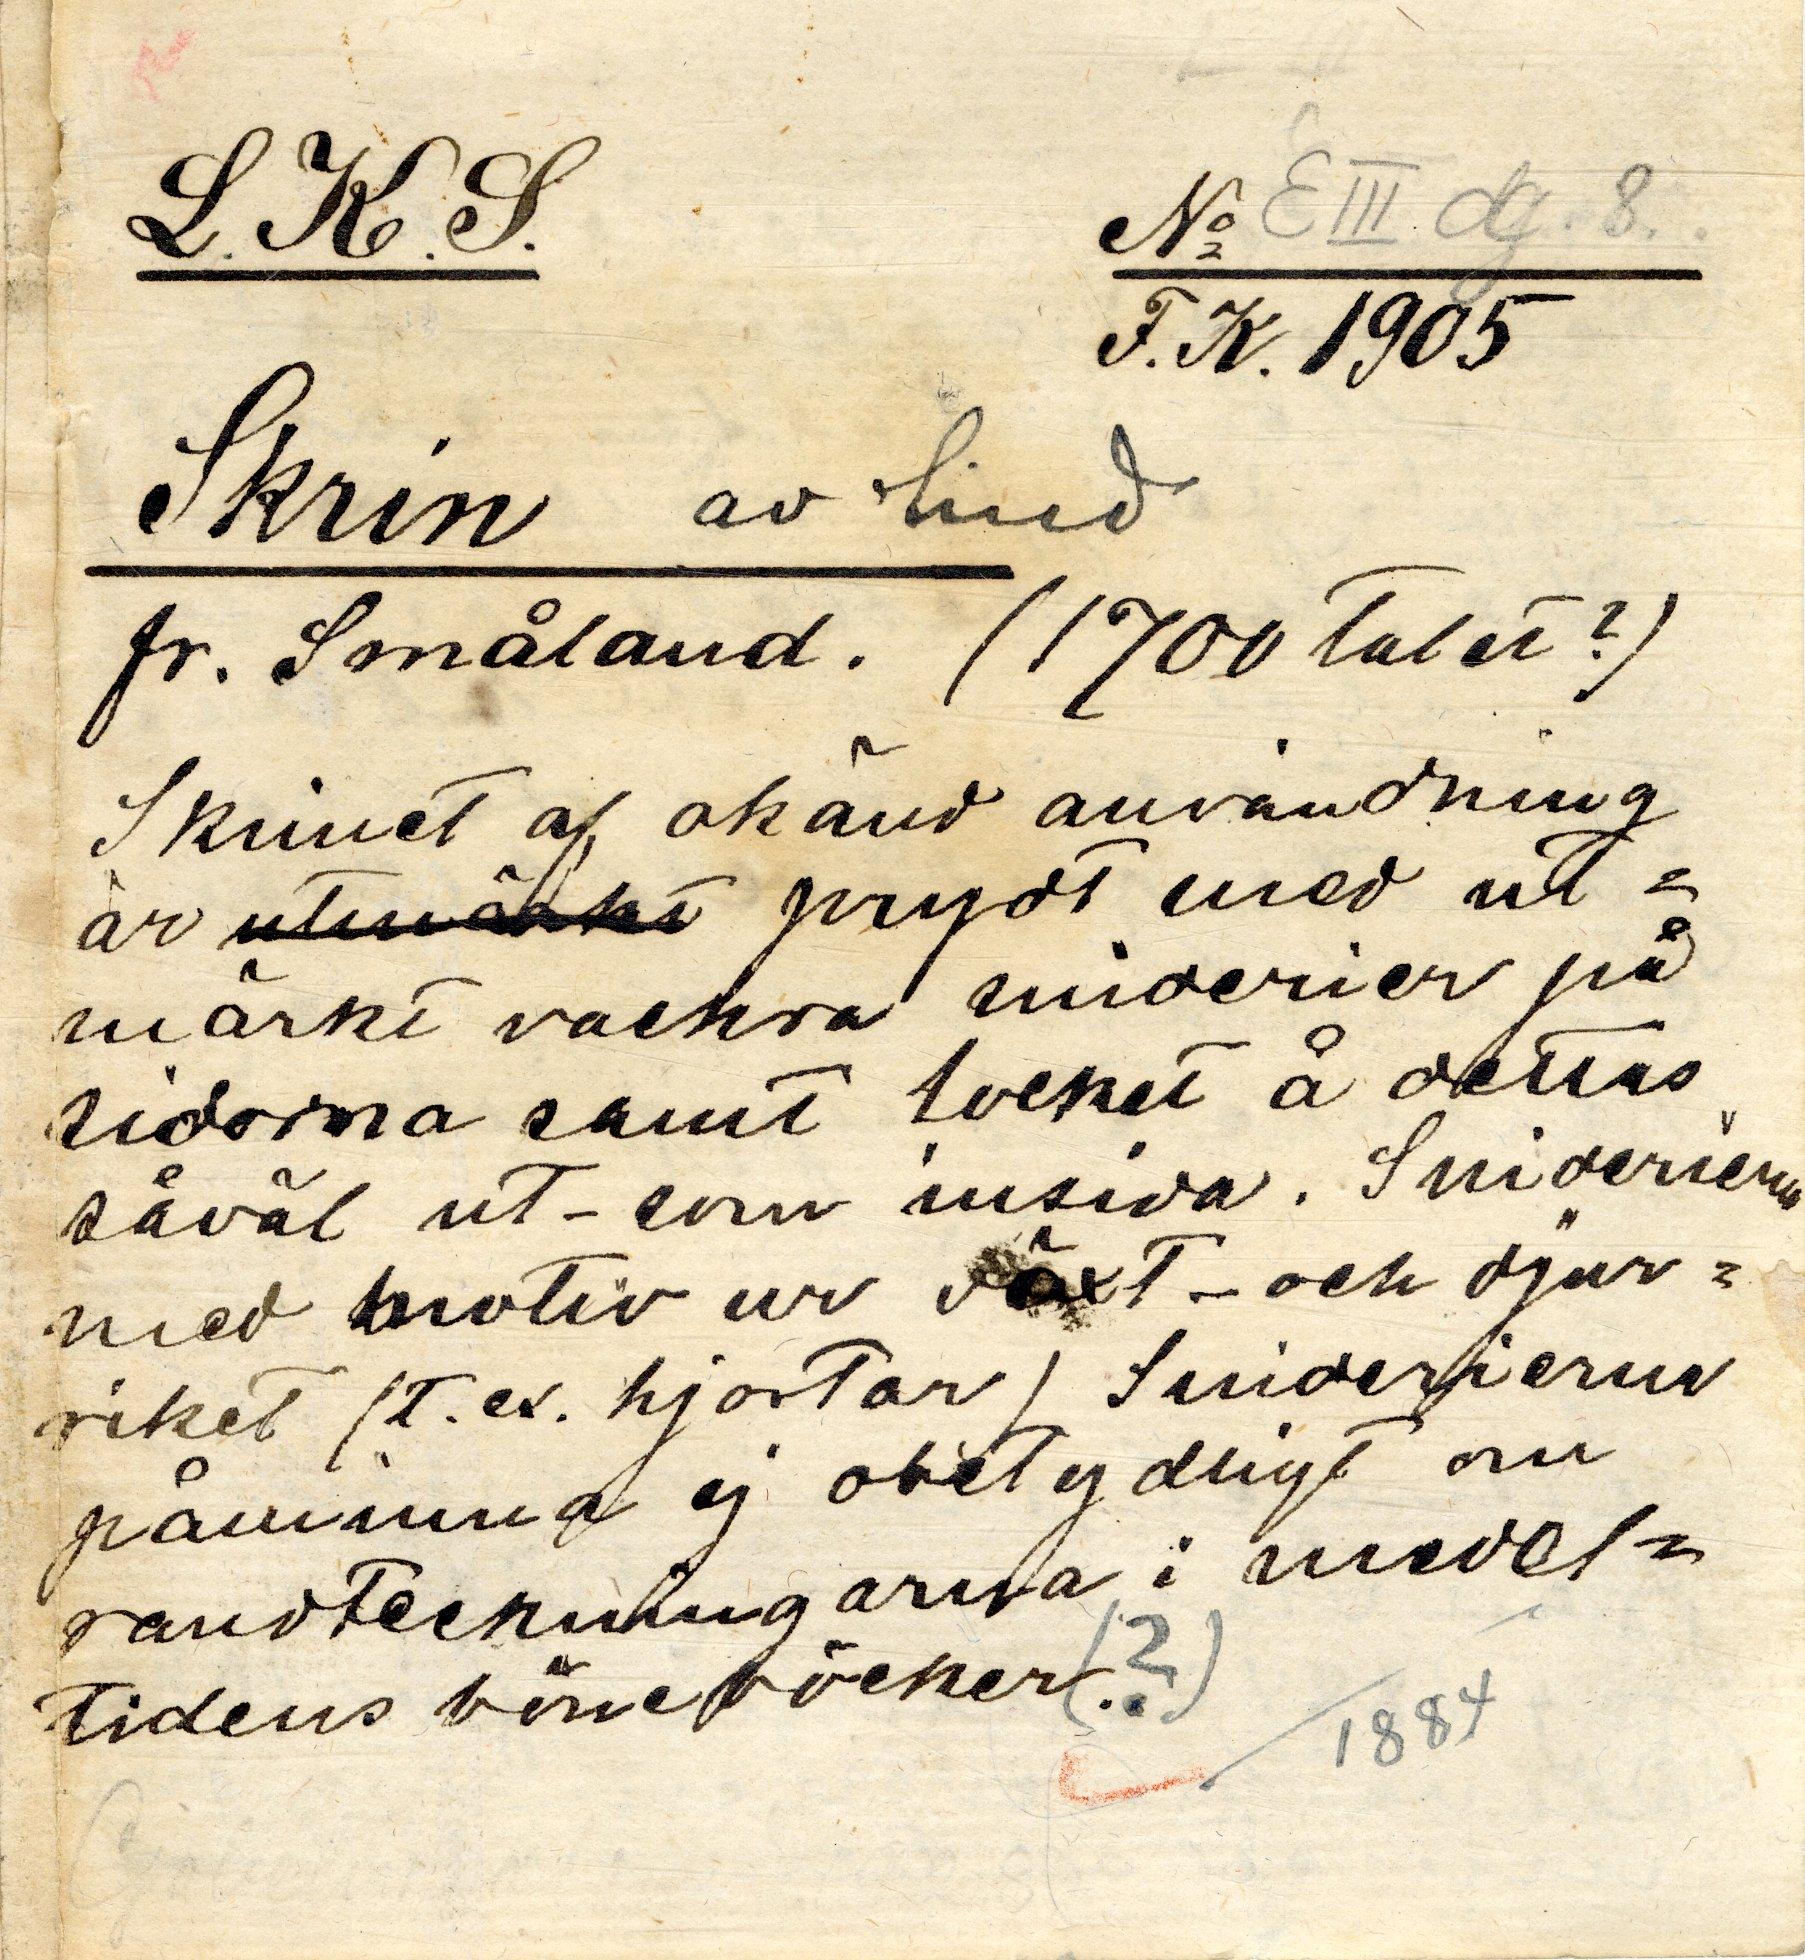 L.K.S.
No E III dg. 8.
F.K. 1905
Skrin av lind
fr. Småland. (1700 talet?)
Skrinet af okänd användning
är utmärkt prydt med ut=
märkt vackra sniderier på
sidorna samt locket å dettas
såväl ut- som insida. Sniderierna
med motiv ur växt- och djur=
riket (t. ex. hjortar) Sniderierna
påminna ej obetydligt om
randteckningarna i medel=
tidens böneböcker. (?)
1884